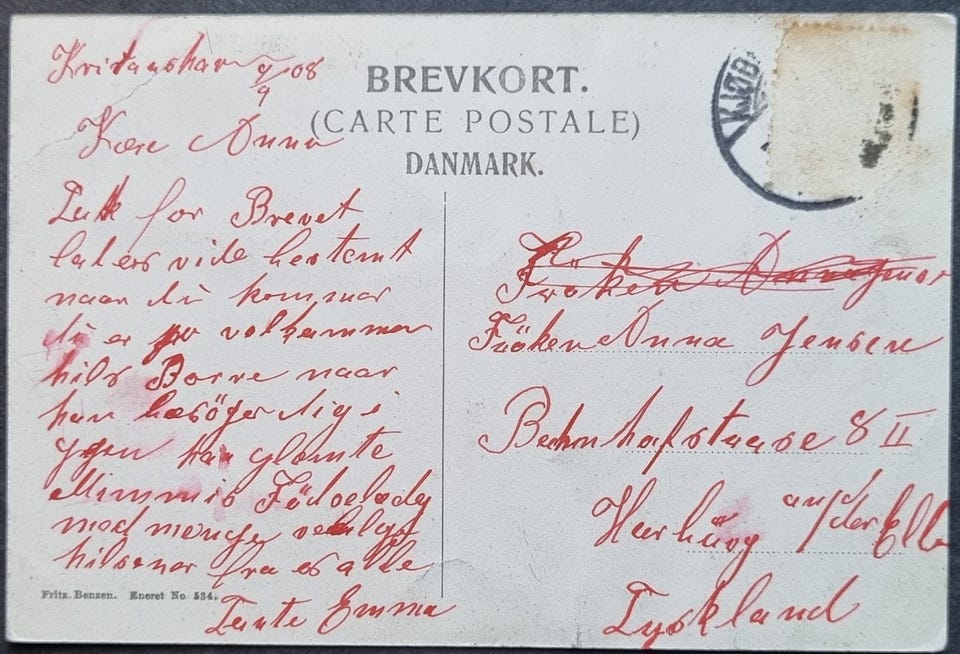 Kristanshavn 9/9 08
Kære Anna
Tak for Brevet
lad os vide bestemt
naar du kommer
du er velkommen
hils Borre naar
han besöger dig i
gjen han glemte
Mimmis Födselsdag
med mange venlige
hilsener fra os alle
Tante Emma
BREVKORT.
(CARTE POSTALE)
DANMARK.
KJØB
Fröken Anna Jensen
Bahnhofstrasse 8 II
Harburg an/der Elbe
Tyskland
Fritz Benzen. Eneret No 534.